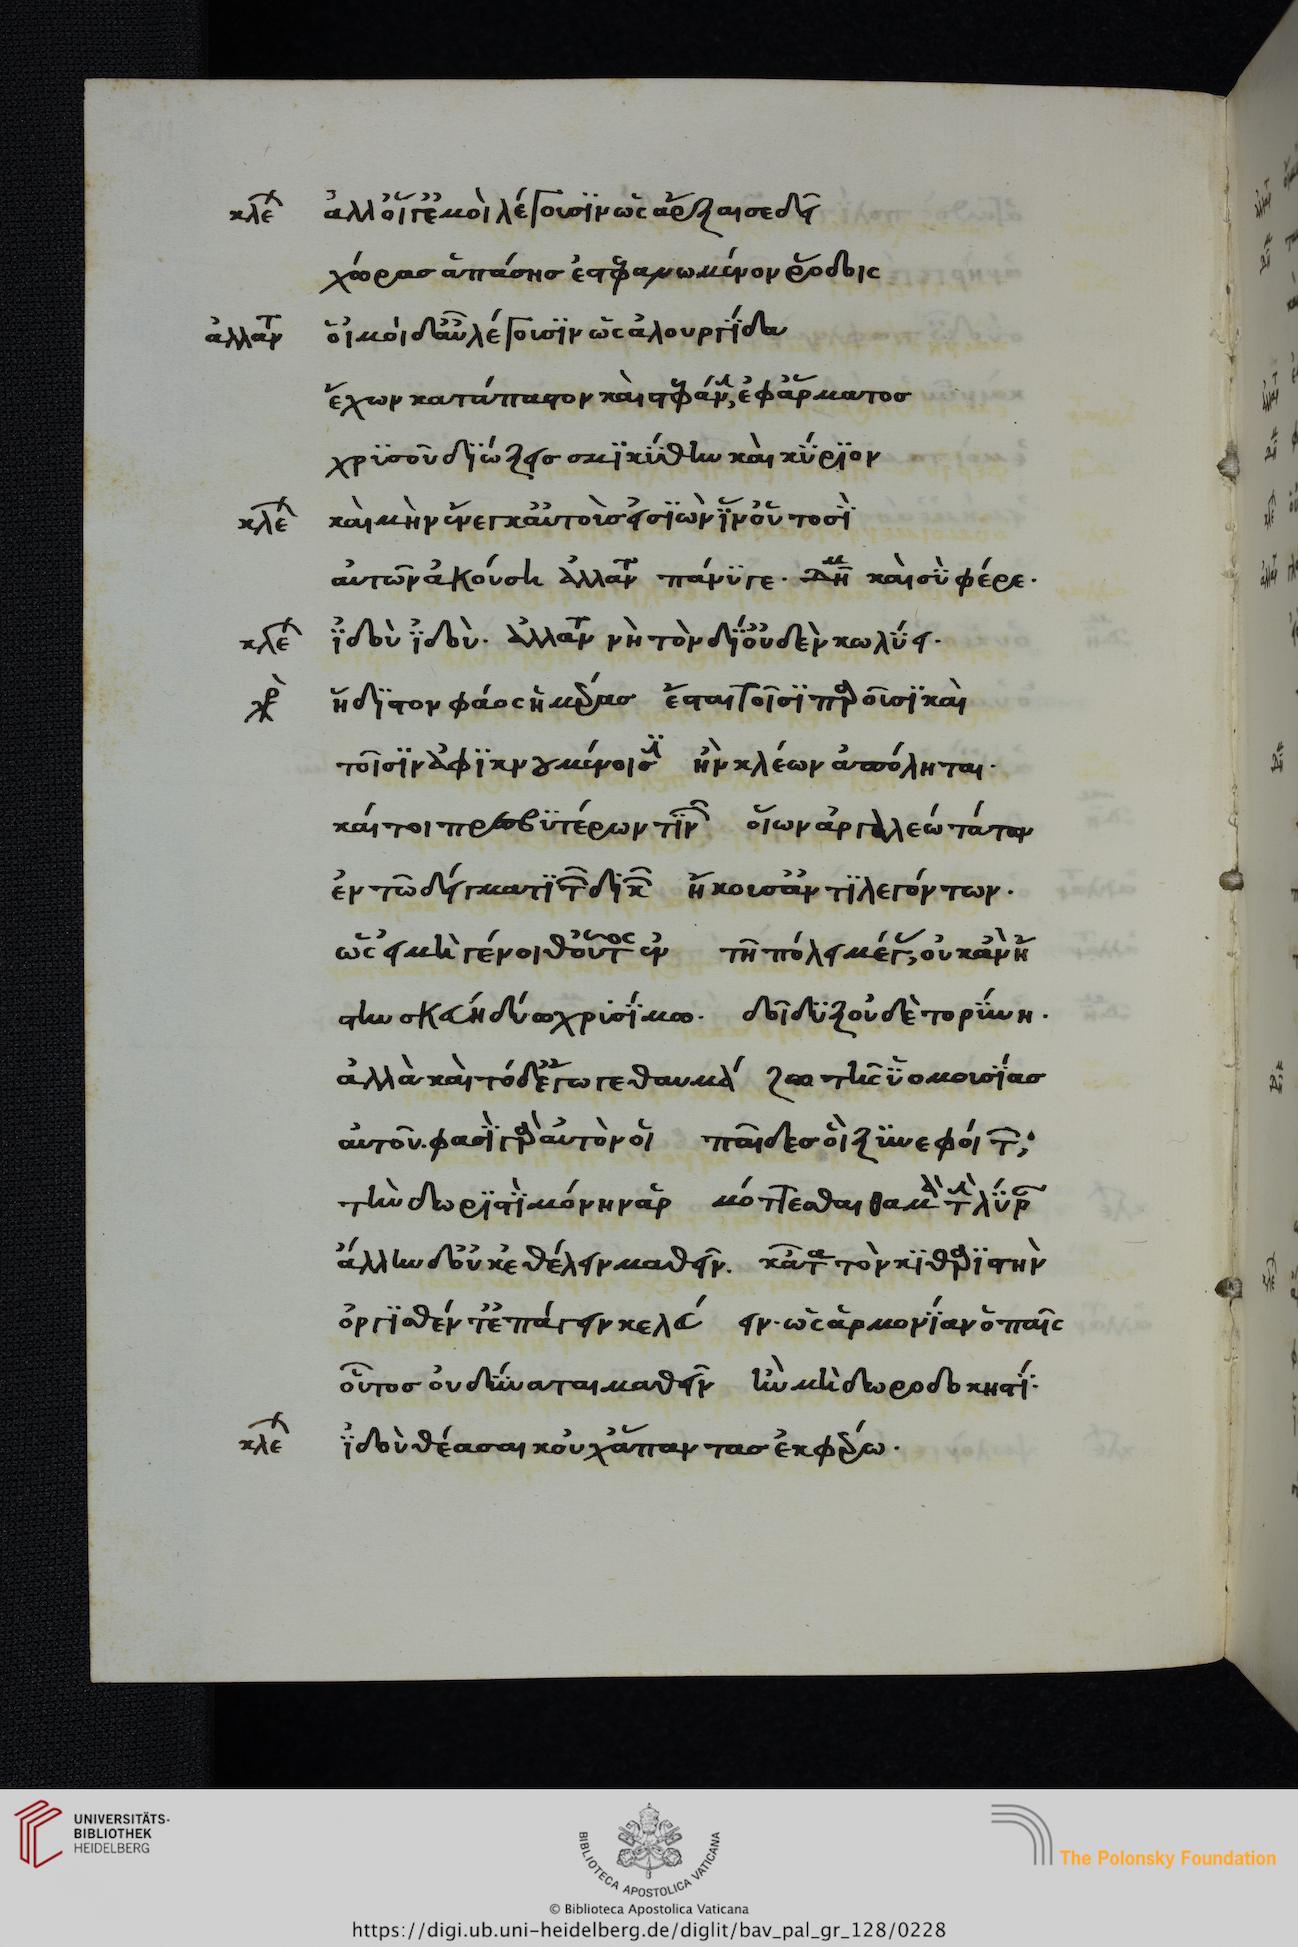 κλε ἀλλ' οἵ γ' ἐμοὶ λέγουσιν ὡς ἄρξαι σε δεῖ
χώρας ἁπάσης ἐστεφανωμένον ῥόδοις
ἀλλαν οἱ 'μοὶ δ' αὖ λέγουσιν ὡς ἁλουργίδα
ἔχων κατάπαστον καὶ στεφάνην ἐφ' ἅρματος
χρυσοῦ διώξεις σμικύθην καὶ κύριον
κλε καὶ μὴν ἔνεγκ' αὐτοὺς ἰών ἵν' οὑτοσὶ
αὐτῶν ἀκούσῃ ἀλλαν πάνυ γε. δημ καὶ σὺ φέρε.
κλε ἰδοὺ ἰδού. ἀλλαν νὴ τὸν δί' οὐδὲν κωλύει.
χρ ἥδιστον φάος ἡμέρας ἔσται τοῖσι παροῦσι καὶ
τοῖσιν ἀφικνουμένοισιν ἢν κλέων ἀπόληται.
καίτοι πρεσβυτέρων τινῶν οἵων ἀργαλεωτάτων
ἐν τῷ δείγματι τῶν δικῶν ἤκουσ' ἀντιλεγόντων.
ὡς εἰ μὴ γένοιθ' οὗτος ἐν τῇ πόλει μέγας, οὐκ ἂν ἤ
στην σκεύη δύω χρησίμω. δοῖδυξ οὐδὲ τορύνη.
ἀλλὰ καὶ τόδ' ἔγωγε θαυμά ζω τῆς ὑομουσίας
αὐτοῦ. φασὶ γὰρ αὐτὸν οἱ παῖδες οἳ ξυνεφοίτων,
τὴν δωριστὶ μόνην ἂρ μόττεσθαι θαμὰ τὴν λύραν
ἄλλην δ' οὐκ ἐθέλειν μαθεῖν. κᾆτα τὸν κιθαριστὴν
ὀργισθέντ' ἐπάγειν κελεύ ειν. ὡς ἁρμονίαν ὁ παῖς
οὗτος οὐ δύναται μαθεῖν ἢν μὴ δωροδοκηστί.
κλε ἰδοὺ θέασαι κοὐχ ἅπαντας ἐκφέρω.
UNIVERSITÄTS-
BIBLIOTHEK
HEIDELBERG
BIBLIOTECA APOSTOLICA VATICANA
The Polonsky Foundation
© Biblioteca Apostolica Vaticana
https://digi.ub.uni-heidelberg.de/diglit/bav_pal_gr_128/0228